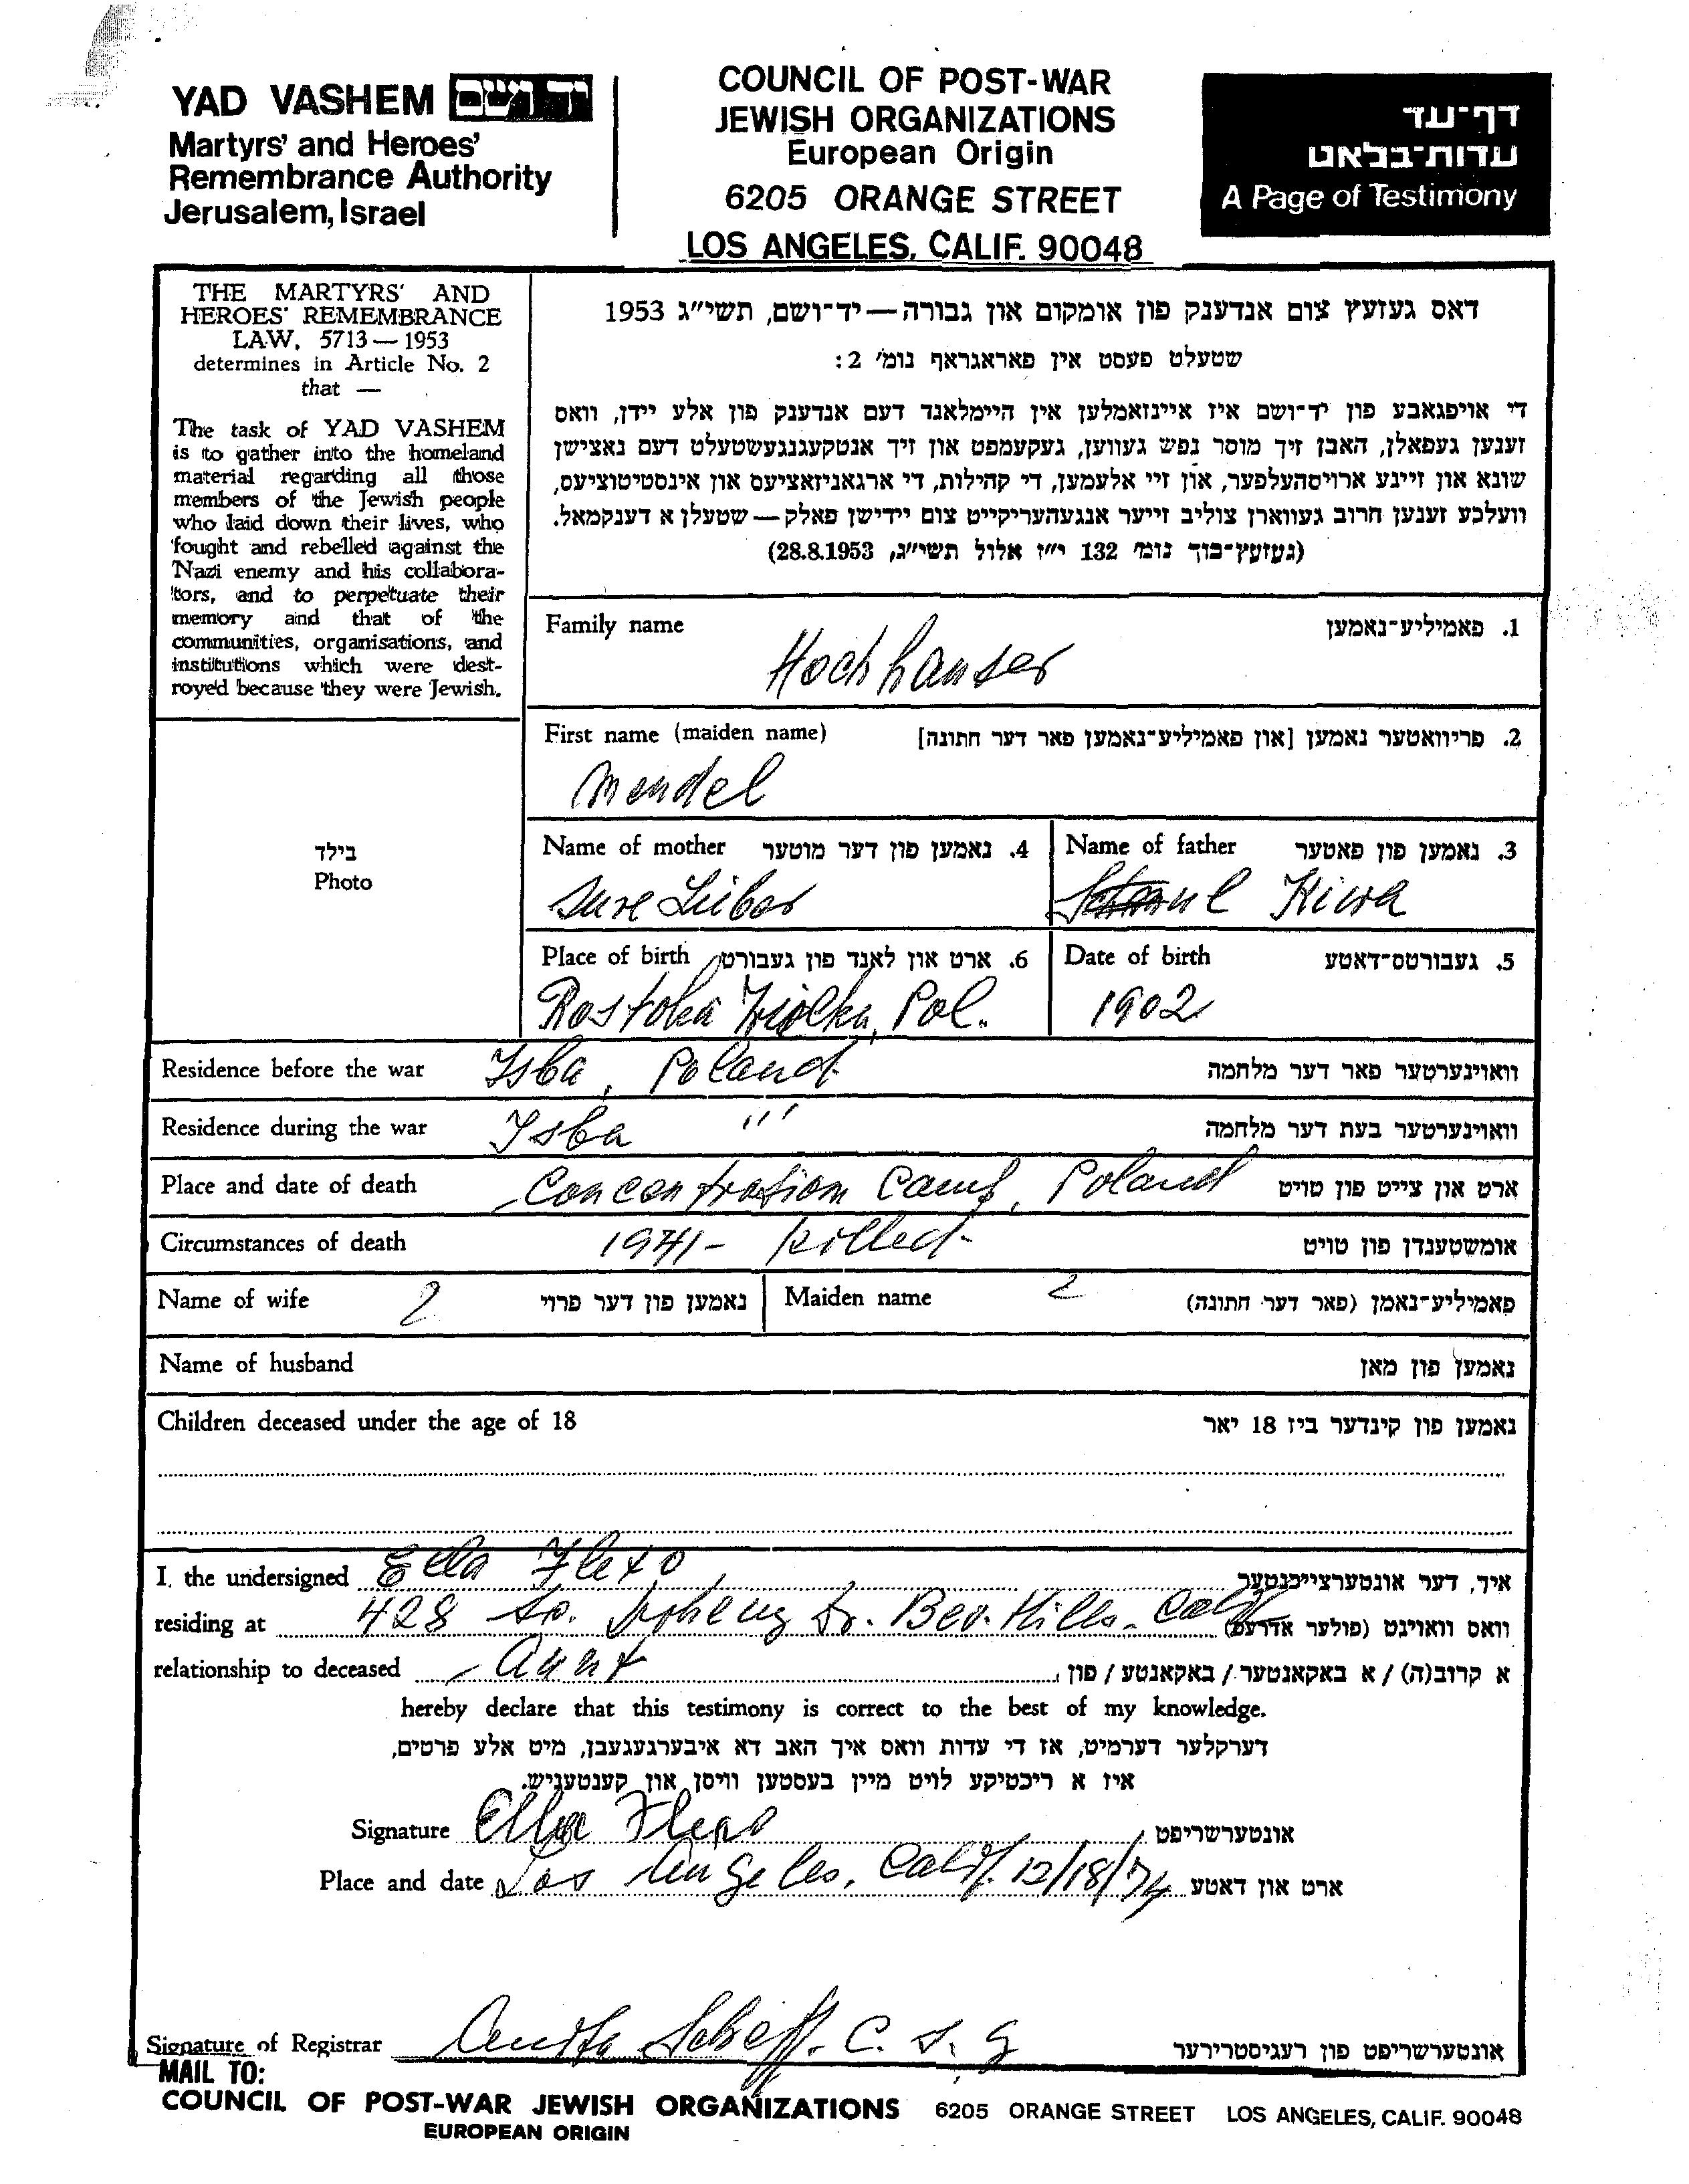 YAD VASHEM יד ושם
Martyrs' and Heroes'
Remembrance Authority
Jerusalem, Israel
COUNCIL OF POST-WAR
JEWISH ORGANIZATIONS
European Origin
6205 ORANGE STREET
LOS ANGELES, CALIF. 90048
דף־עד
עדות־בלאט
A Page of Testimony
THE MARTYRS' AND
HEROES' REMEMBRANCE
LAW, 5713—1953
determines in Article No. 2
that —
The task of YAD VASHEM
is to gather into the homeland
material regarding all those
members of the Jewish people
who laid down their lives, who
fought and rebelled against the
Nazi enemy and his collabora-
tors, and to perpetuate their
memory and that of the
communities, organisations, and
institutions which were dest-
royed because they were Jewish.
דאס געזעץ צום אנדענק פון אומקום און גבורה — יד־ושם, תשי"ג 1953
שטעלט פעסט אין פאראגראף נומ' 2:
די אויפגאבע פון יד־ושם איז איינזאמלען אין היימלאנד דעם אנדענק פון אלע יידן, וואס
זענען געפאלן, האבן זיך מוסר נפש געווען, געקעמפט און זיך אנטקעגנגעשטעלט דעם נאצישן
שונא און זיינע ארויסהעלפער, און זיי אלעמען, די קהילות, די ארגאניזאציעס און אינסטיטוציעס,
וועלכע זענען חרוב געווארן צוליב זייער אנגעהעריקייט צום יידישן פאלק — שטעלן א דענקמאל.
(געזעץ־בוך נומ' 132 י"ז אלול תשי"ג, 28.8.1953)
Family name 1. פאמיליע־נאמען
Hochhauser
First name (maiden name) 2. פריוואטער נאמען [און פאמיליע־נאמען פאר דער חתונה]
Mendel
בילד
Photo
Name of mother 4. נאמען פון דער מוטער
Sure Liber
Name of father 3. נאמען פון פאטער
Kiwa
Place of birth 6. ארט און לאנד פון געבורט
Rostoka Pol.
Date of birth 5. געבורטס־דאטע
1902
Residence before the war Isba, Poland וואוינערטער פאר דער מלחמה
Residence during the war Isba " וואוינערטער בעת דער מלחמה
Place and date of death Concentration Camp, Poland ארט און צייט פון טויט
Circumstances of death 1941 - killed - אומשטענדן פון טויט
Name of wife ? נאמען פון דער פרוי
Maiden name ? פאמיליע־נאמן (פאר דער חתונה)
Name of husband נאמען פון מאן
Children deceased under the age of 18 נאמען פון קינדער ביז 18 יאר
I, the undersigned Ella Flexo איך, דער אונטערצייכנטער
residing at 428 So. Dr. Bev. Hills - Calif וואס וואוינט (פולער אדרעס)
relationship to deceased Aunt א קרוב(ה) / א באקאנטער / באקאנטע / פון
hereby declare that this testimony is correct to the best of my knowledge.
דערקלער דערמיט, אז די עדות וואס איך האב דא איבערגעגעבן, מיט אלע פרטים,
איז א ריכטיקע לויט מיין בעסטען וויסן און קענטעניש.
Signature Ella Flexo אונטערשריפט
Place and date Los Angeles, Calif. 12/18/74 ארט און דאטע
Signature of Registrar C. S. G אונטערשריפט פון רעגיסטרירער
MAIL TO:
COUNCIL OF POST-WAR JEWISH ORGANIZATIONS 6205 ORANGE STREET LOS ANGELES, CALIF. 90048
EUROPEAN ORIGIN